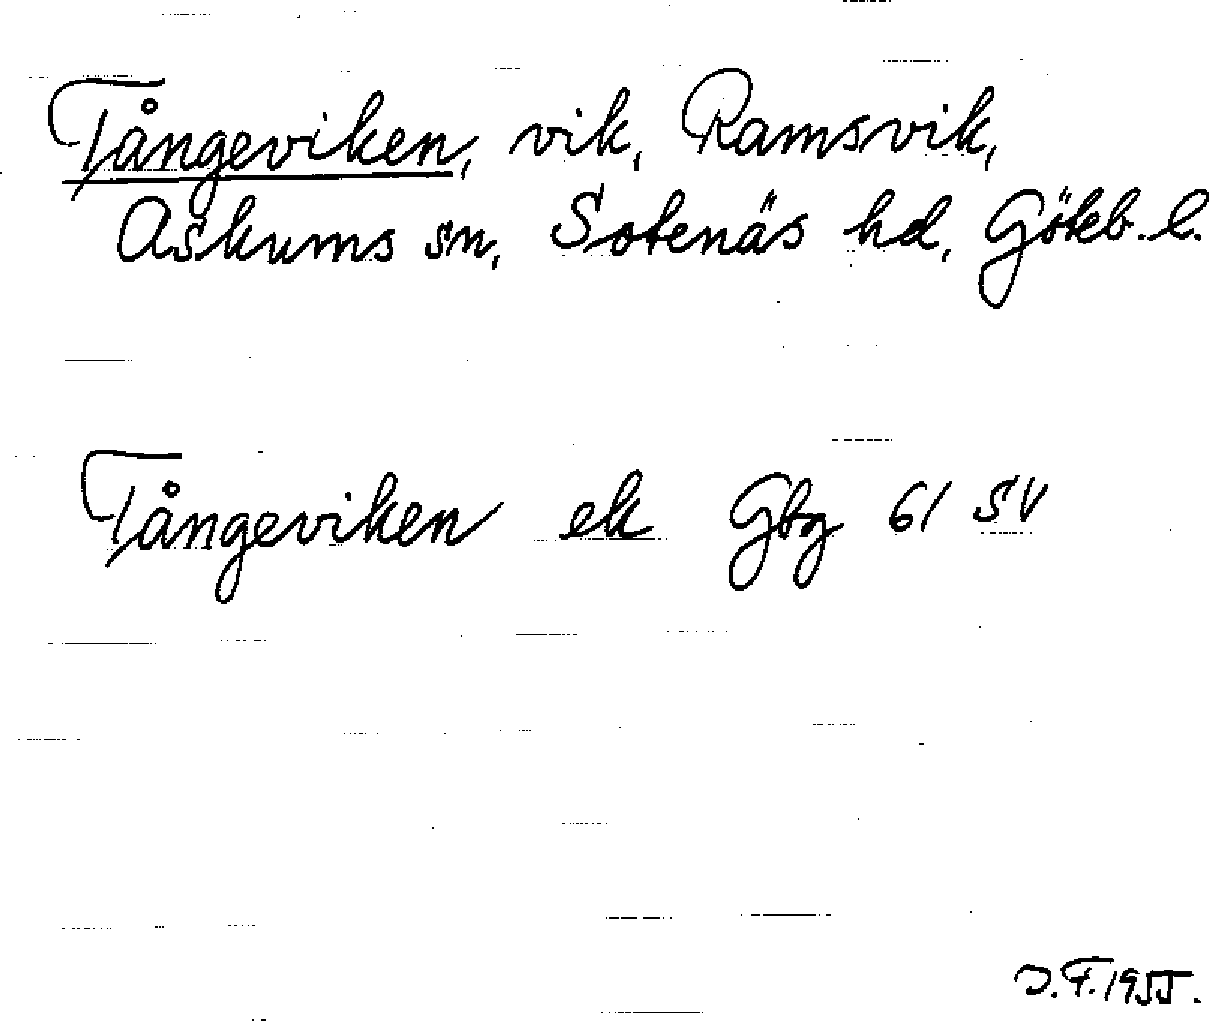 Tångeviken, vik, Ramsvik,
Askums sn, Sotenäs hd, Göteb. l.
Tångeviken ek Gbg 61 SV
J. F. 1955.